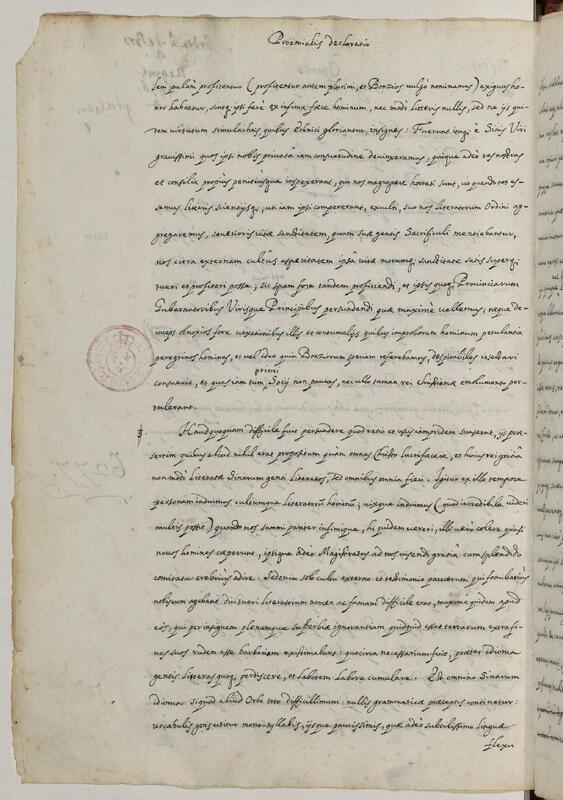 Proëmialis declaratio
sem palàm profitentur (profitentur autem plurimi, et Bonzios vulgò nominamus) exiguus ho-
nor habeatur, sintq; isti ferè ex infima fæce hominum, nec modò litteris nullis, sed ne ijs qui-
dem virtutum simulachris quibus Ethnici gloriantur, insignes: Fuerunt itaq; è Sinis Viri
gravissimi quos ipsi nobis privatâ iam consuetudine devinxeramus, quique adeò res nostras
et consilia propiùs penitiusque inspexerant, qui nos magnopere hortati sunt, ut quando tot es-
semus literis scientijsq;, uti iam ipsi compererant, exculti, suo nos Literatorum Ordini ag-
gregaremus, severioris vitæ sanctitatem, quam suæ gentis Sacrificuli mentiebantur,
nos citra externam cultûs asperitatem ipsâ vitæ morumq; sanctitate satis superq;
tueri et profiteri posse; sic spem fore tandem proficiendi, et ipsis quoq; Provinciarum
Gubernatoribus Virisque Principibus persuadendi quæ maximè vellemus; neque de-
inceps obnoxios fore vexationibus illis et contumelijs quibus improborum hominum petulantia
peregrinos homines, et vel ideo quia Bonziorum speciem referebamus, despicabiles insectari
consuevit, et quas iam tum primi Socij non paucas, nec ullo tamen rei Christianæ emolumento per-
tulerant.
Haudquaquam difficile fuit persuadere quod ratio et usus iampridem suaserat, ijs præ-
sertim quibus aliud nihil erat propositum quàm omnes Christo lucrifacere, et huius rei gratiâ
non modò Literatæ Sinarum genti Literatos, sed omnibus omnia fieri. Igitur ex illo tempore
personam induimus cultumque Literatorum hominum; vixque induimus (quod incredibile videri
multis possit) quando nos summi pariter infimique, hi quidem vereri, illi verò colere quasi
novos homines cæperunt, ipsique adeò Magistratus ad nos visendi gratiâ cum splendido
comitatu crebriùs adire. Sedenim solo cultu externo et testimonio paucorum qui familiariùs
nobiscum agebant diu tueri Literatorum nomen ac famam difficile erat, maximè quidem apud
eos, qui per insignem plenamque superbiæ ignorantiam quidquid esset terrarum extra fi-
nes suos rudem esse barbariem existimabant: quocirca necessarium fuit, præter idioma
gentis Literas quoq; perdiscere, et laborem labore cumulare. Est omnino Sinarum
idioma siquod aliud Orbe toto difficillimum: nullis grammaticæ præceptis continetur:
vocabulis gens utitur monosyllabis, ijsque paucissimis, quæ adeò subtilissimo linguæ
flexu